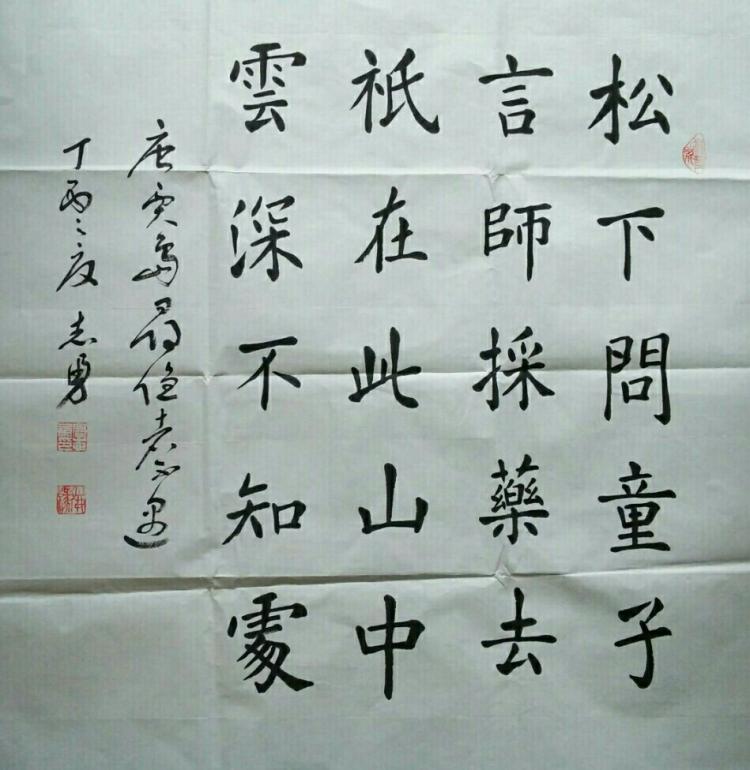 松下問童子
言師採藥去
祇在此山中
雲深不知處
唐賈島尋隱者不遇
丁酉之夏志勇